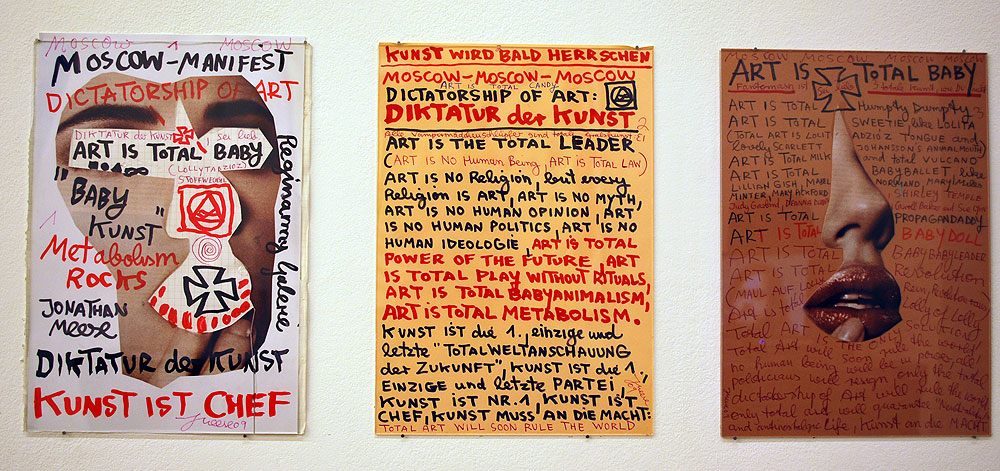 MOSCOW 1 MOSCOW
MOSCOW-MANIFEST
DICTATORSHIP OF ART
DIKTATUR der KUNST
ART IS TOTAL BABY
(LOLLYTADZIOZ)
STOFFWECHSEL
"BABY
KUNST"
1
Metabolism
ROCKS
JONATHAN
Meese
DIKTATUR der KUNST
KUNST IST CHEF
JMeese 09
Galerie
KUNST WIRD BALD HERRSCHEN
MOSCOW-MOSCOW-MOSCOW
ART IS TOTAL CANDY
DICTATORSHIP OF ART:
DIKTATUR der KUNST
ART IS THE TOTAL LEADER
(ART IS NO Human Being, ART IS TOTAL LAW)
ART IS NO Religion, but every
Religion IS ART, ART IS NO MYTH,
ART IS NO HUMAN OPINION, ART
IS NO HUMAN POLITICS, ART IS NO
HUMAN IDEOLOGIE, ART IS TOTAL
POWER OF THE FUTURE, ART
IS TOTAL PLAY WITHOUT RITUALS,
ART IS TOTAL BABYANIMALISM,
ART IS TOTAL METABOLISM.
KUNST IST die 1., einzige und
letzte "TOTALWELTANSCHAUUNG
der ZUKUNFT", KUNST IST die 1.,
EINZIGE und letzte PARTEI,
KUNST IST NR. 1, KUNST IST
CHEF, KUNST MUSS AN DIE MACHT:
TOTAL ART WILL SOON RULE THE WORLD
MOSCOW MOSCOW MOSCOW MOSCOW
ART IS TOTAL BABY
ART IS TOTAL HUMPTY DUMPTY
ART IS TOTAL SWEETIE like LOLITA
(TOTAL ART IS LOLIT ADZIOZ TONGUE and
lovely SCARLETT JOHANSSON'S ANIMAL MOUTH)
ART IS TOTAL MILK and total VULCANO
ART IS TOTAL BABYBALLET, like
LILLIAN GISH, MABEL NORMAND, MARY MILES
MINTER, MARY PICKFORD, SHIRLEY TEMPLE
Judy Garland, DEANNA DURBIN
ART IS TOTAL PROPAGANDADDY
ART IS TOTAL BABYDOLL
ART IS TOTAL BABYBABYLEADER
ART IS TOTAL Revolution
(MAUL AUF,
Art is total Lolly of Lolly
Total Art IS ONLY SOLUTION
Total Art will soon rule the world
no human being will be in power, all
politicians will resign, only the total
dictatorship of Art will rule the world
only total Art will guarantee
and antinostalgic Life, Kunst an die MACHT